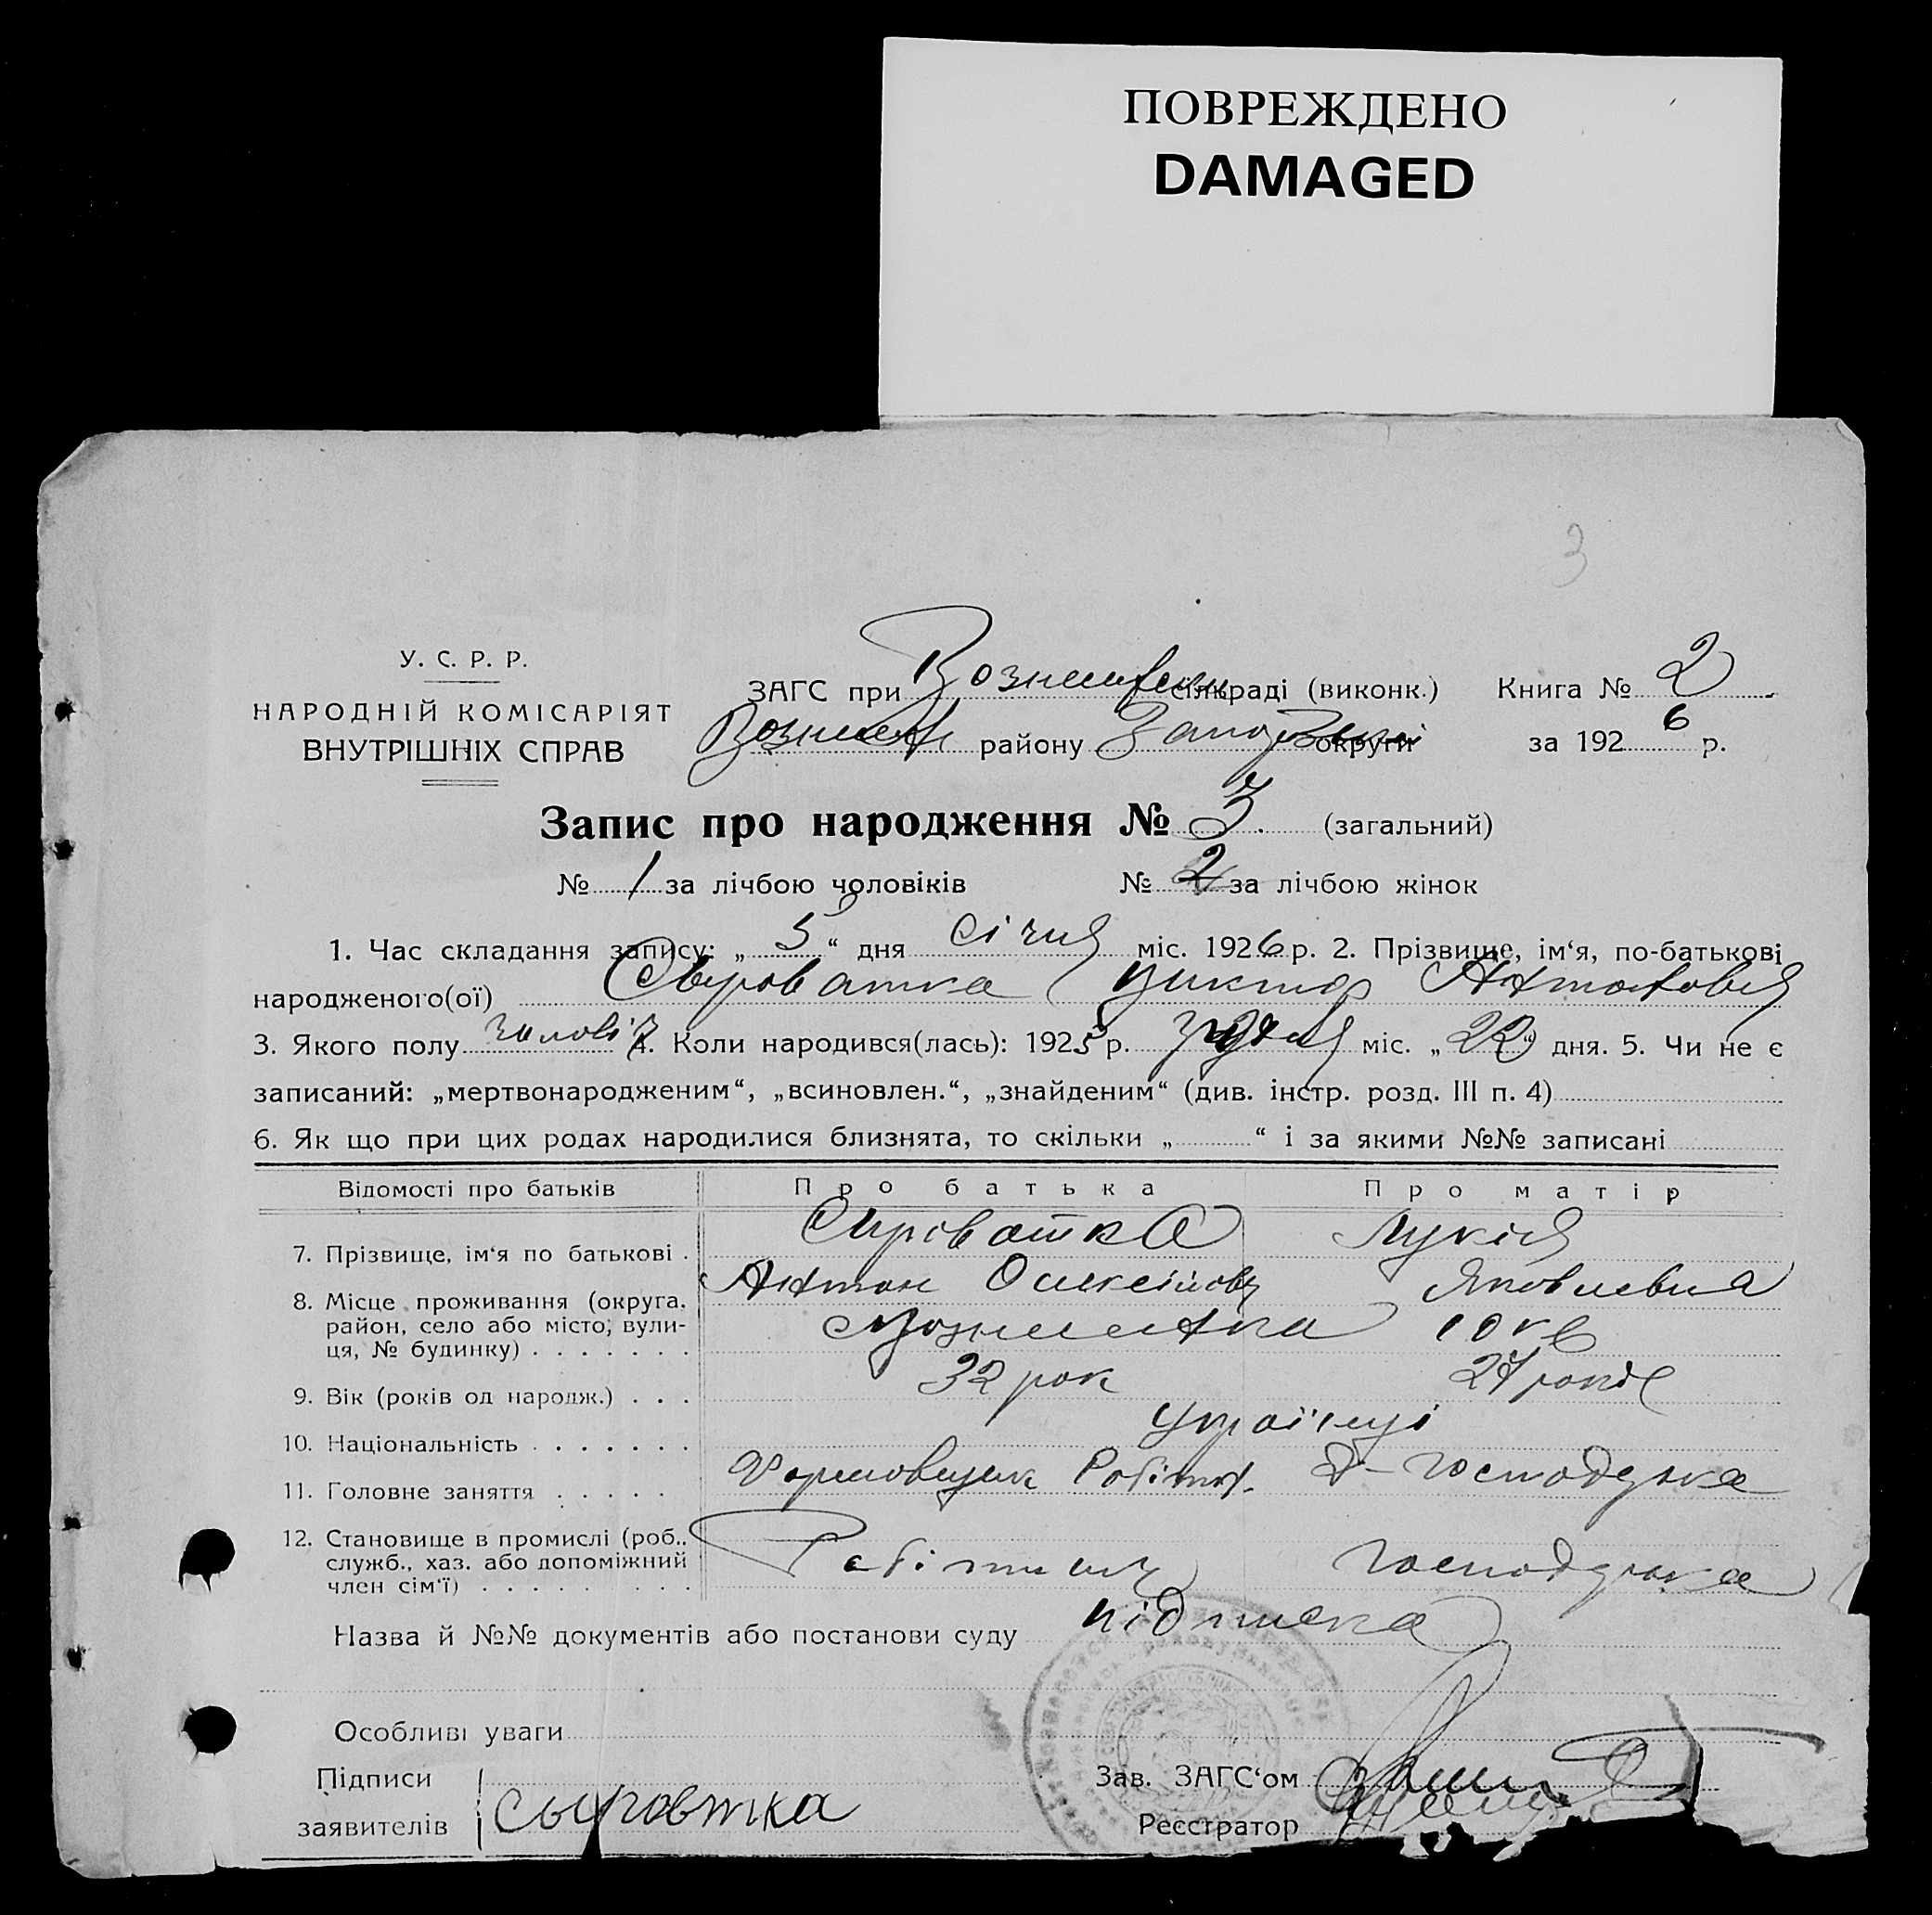 ПОВРЕЖДЕНО
DAMAGED
3
У. С. Р. Р.
НАРОДНІЙ КОМІСАРІЯТ
ВНУТРІШНІХ СПРАВ
ЗАГС при сількраді (виконк.) Книга № 2
району округи за 192 6 р.
Запис про народження № 3 (загальний)
№ 1 за лічбою чоловіків № 2 за лічбою жінок
1. Час складання запису: „ 5 “ дня січня міс. 1926 р. 2. Прізвище, ім‘я, по-батькові
народженого(ої) Сыроватка Антонович
3. Якого полу чоловіч 4. Коли народився(лась): 1925 р. грудня міс. „ 22 “ дня. 5. Чи не є
записаний: „мертвонародженим“, „всиновлен.“, „знайденим“ (див. інстр. розд. III п. 4)
6. Як що при цих родах народилися близнята, то скільки „ “ і за якими №№ записані
Відомості про батьків Про батька Про матір
7. Прізвище, ім‘я по батькові Сироватка Лукія
Антон Олексійов Яковлевна
8. Місце проживання (округа, район, село або місто, вули-
ця, № будинку) Вознесенка
9. Вік (років од народж.) 32 рок 27 років
10. Національність Українці
11. Головне заняття Формовщик Робітн. Д-господарка
12. Становище в промислі (роб.,
служб., хаз. або допоміжний
член сім‘ї) Робітник господарка
Назва й №№ документів або постанови суду підписка
Особливі уваги
Підписи
заявителів Сыровтка
Зав. ЗАГС‘ом
Реєстратор